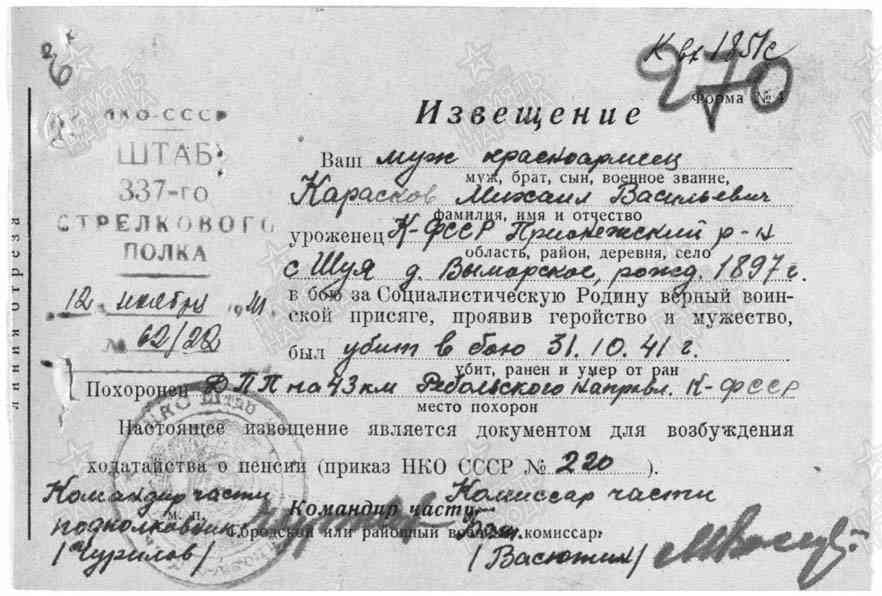 К вх 185/с
270
Форма № 4
Извещение
НКО-СССР
ШТАБ
337-го
СТРЕЛКОВОГО
ПОЛКА
12 ноября 41.
№ 62/22
линия отреза
Ваш муж красноармеец
муж, брат, сын, военное звание,
Карасков Михаил Васильевич
фамилия, имя и отчество
уроженец К-ФССР Прионежский р-н
область, район, деревня, село
с Шуя д. Выморское, рожд. 1897 г.
в бою за Социалистическую Родину верный воин-
ской присяге, проявив геройство и мужество,
был убит в бою 31.10.41 г.
убит, ранен и умер от ран
Похоронен ДПП на 43 км Ребольского направл. К-ФССР
место похорон
Настоящее извещение является документом для возбуждения
ходатайства о пенсии (приказ НКО СССР № 220 ).
Командир части Комиссар части
м. п. Командир части
подполковник
Городской или районный военный комиссар
/Чурилов/ /Васюткин/